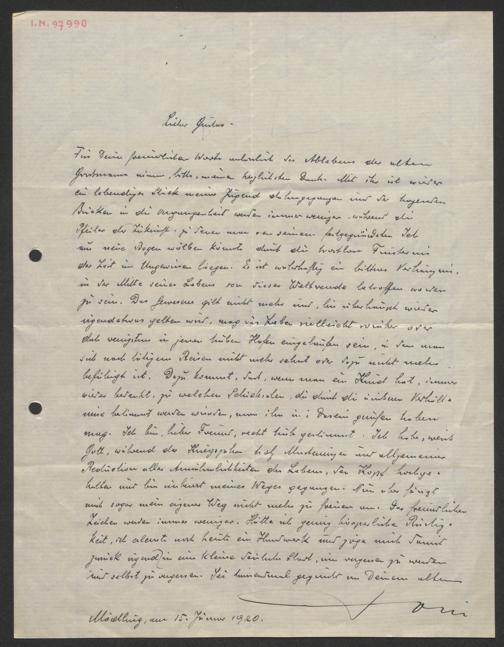 I.N. 97990
Lieber Gustav –
Für Deine freundlichen Worte anlässlich des Ablebens der alten
nimm, bitte, meinen herzlichsten Dank. Mit ihr ist wieder
ein lebendiges Stück meiner Jugend dahingegangen und der tragenden
Brücken in die Vergangenheit werden immer weniger, während die
Pfeiler der Zukunft, zu denen man von seinem festgegründeten Ich
aus neue Bogen wölben könnte durch die trostlose Finsternis
der Zeit im Ungewissen liegen. Es ist wahrhaftig ein bitteres Verhängnis,
in der Mitte seines Lebens von dieser Weltwende betroffen worden
zu sein. Das Gewesene gilt nicht mehr und, bis überhaupt wieder
irgendetwas gelten wird, mag das Leben vielleicht vorüber oder
doch wenigstens in jenen trüben Hafen eingelaufen sein, in dem man
sich nach lustigen Reisen nicht mehr sehnt oder dazu nicht mehr
befähigt ist. Dazu kommt, dass, wenn man ein Kind hat, immer
wieder bedenkt, zu welchen Schicksalen, die durch die äusseren Verhält-
nisse bestimmt werden würden, man ihn ins Dasein gerufen haben
mag. Ich bin, lieber Freund, recht trüb gestimmt. Ich habe, weiss
Gott, während der Kriegsjahre trotz Musterungen und allgemeiner
Reduction aller Annehmlichkeiten des Lebens, den Kopf hochge-
halten und bin unbeirrt meines Weges gegangen. Nun aber fängt
mich sogar mein eigener Weg nicht mehr zu freuen an. Die freundlichen
Zeichen werden immer weniger. Hätte ich genug körperliche Rüstig-
keit, ich lernte noch heute ein Handwerk und zöge mich damit
zurück irgend in eine kleine Stadt, um vergessen zu werden
und selbst zu vergessen. Sei tausendmal gegrüsst von Deinem alten
Mödling, am 15. Jänner 1920.